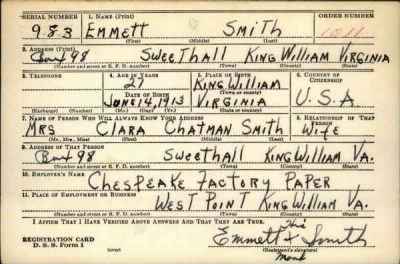 SERIAL NUMBER 1. NAME (Print) ORDER NUMBER
983 EMMETT SMITH 1811
(First) (Middle) (Last)
2. ADDRESS (Print)
Box 98 SWEETHALL KING WILLIAM VIRGINIA
(Number and street or R. F. D. number) (Town) (County) (State)
3. TELEPHONE 4. AGE IN YEARS 5. PLACE OF BIRTH 6. COUNTRY OF CITIZENSHIP
27 KING WILLIAM
DATE OF BIRTH (Town or county)
JUNE 14, 1913 VIRGINIA U.S.A
(Exchange) (Number) (Mo.) (Day) (Yr.) (State or country)
7. NAME OF PERSON WHO WILL ALWAYS KNOW YOUR ADDRESS 8. RELATIONSHIP OF THAT PERSON
MRS CLARA CHATMAN SMITH WIFE
(Mr., Mrs., Miss) (First) (Middle) (Last)
9. ADDRESS OF THAT PERSON
Box 98 SWEETHALL KING WILLIAM VA.
(Number and street or R. F. D. number) (Town) (County) (State)
10. EMPLOYER'S NAME
CHESPEAKE FACTORY PAPER
11. PLACE OF EMPLOYMENT OR BUSINESS
WEST POINT KING WILLIAM VA.
(Number and street or R. F. D. number) (Town) (County) (State)
I AFFIRM THAT I HAVE VERIFIED ABOVE ANSWERS AND THAT THEY ARE TRUE.
his
REGISTRATION CARD Emmett X Smith
D. S. S. Form 1 (over) (Registrant's signature)
mark